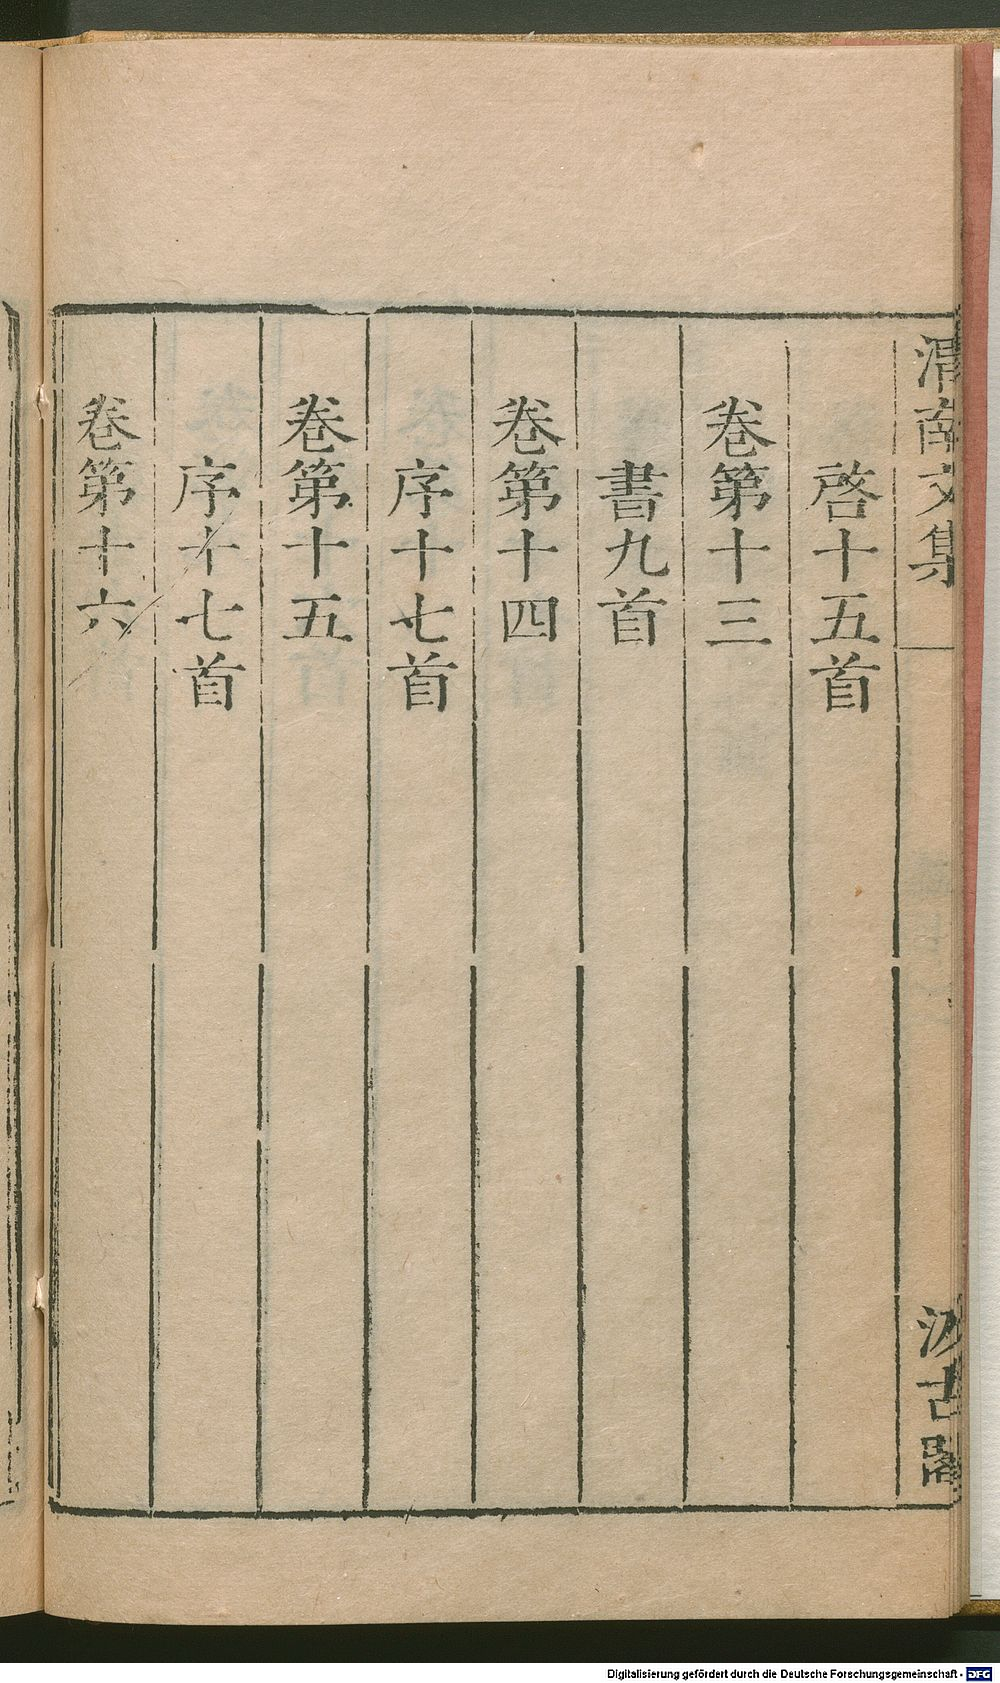 渭南文集
汲古閣
啓十五首
卷第十三
書九首
卷第十四
序十七首
卷第十五
序十七首
卷第十六
Digitalisierung gefördert durch die Deutsche Forschungsgemeinschaft - DFG